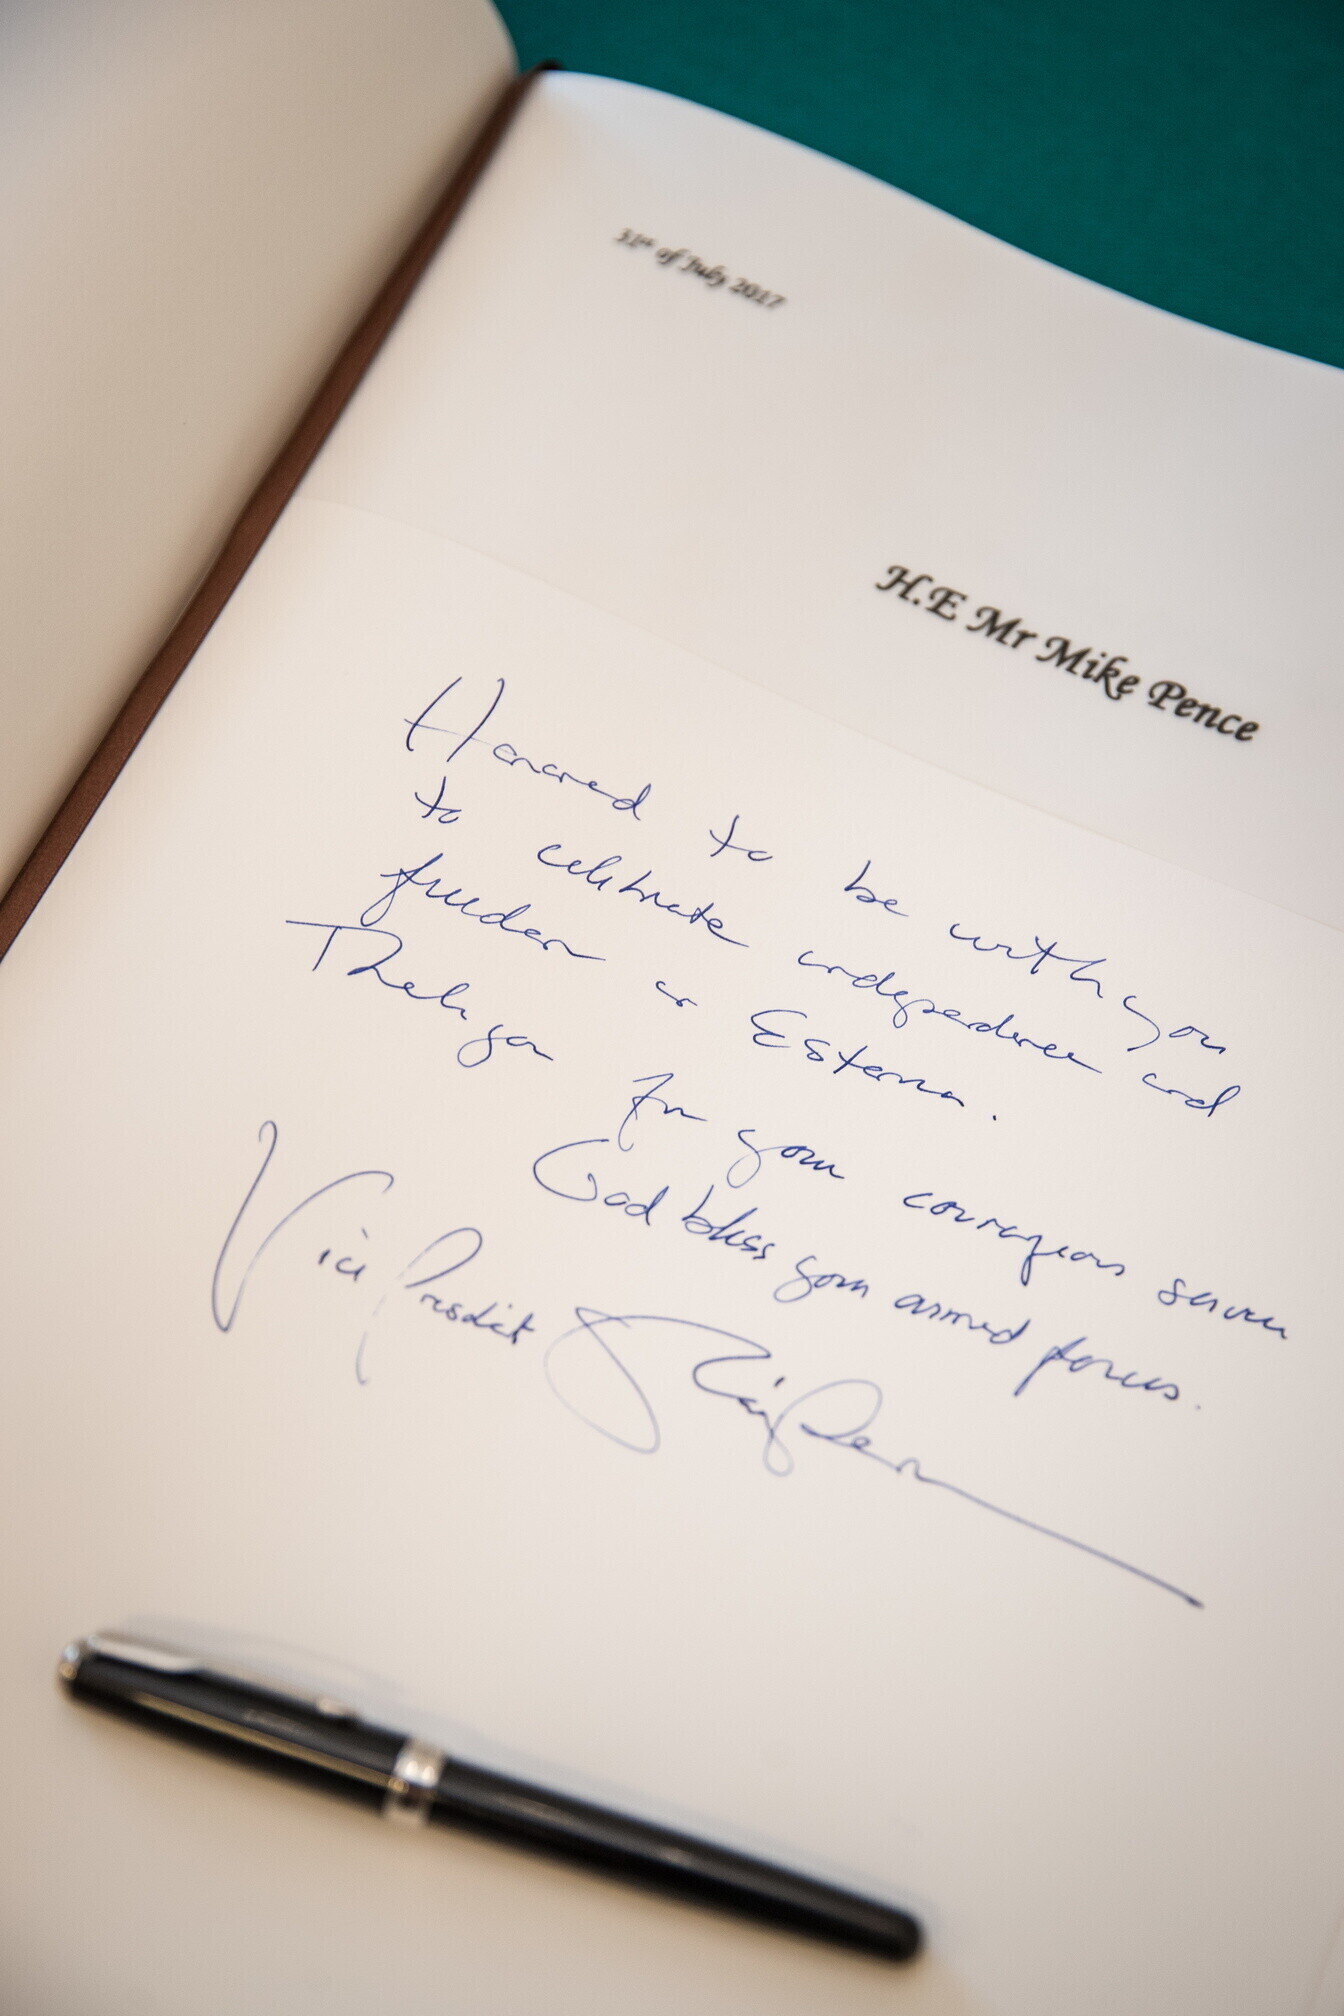 31st of July 2017
H.E Mr Mike Pence
Honored to be with you
to celebrate independence and
freedom in Estonia.
Thank you for your courageous service
God bless your armed forces.
Vice President Mike Pence